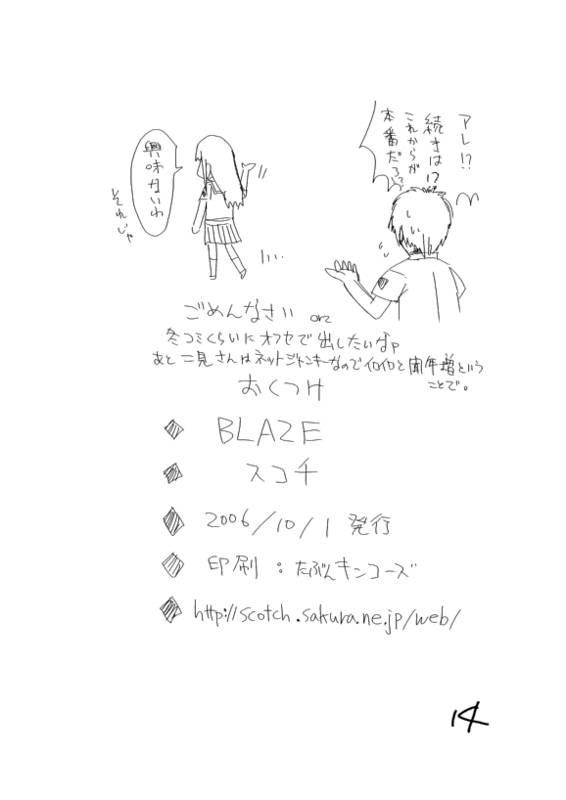 アレ!?
続きは!?
これからが
本番だろ!?
興味ないわ
それじゃ
ごめんなさい orz
冬コミくらいにオフセで出したいなァ
あと二見さんはネットジャンキーなのでイロイロと耳年増という
ことで。
おくつけ
BLAZE
スコチ
2006/10/1 発行
印刷：たぶんキンコーズ
http://scotch.sakura.ne.jp/web/
14